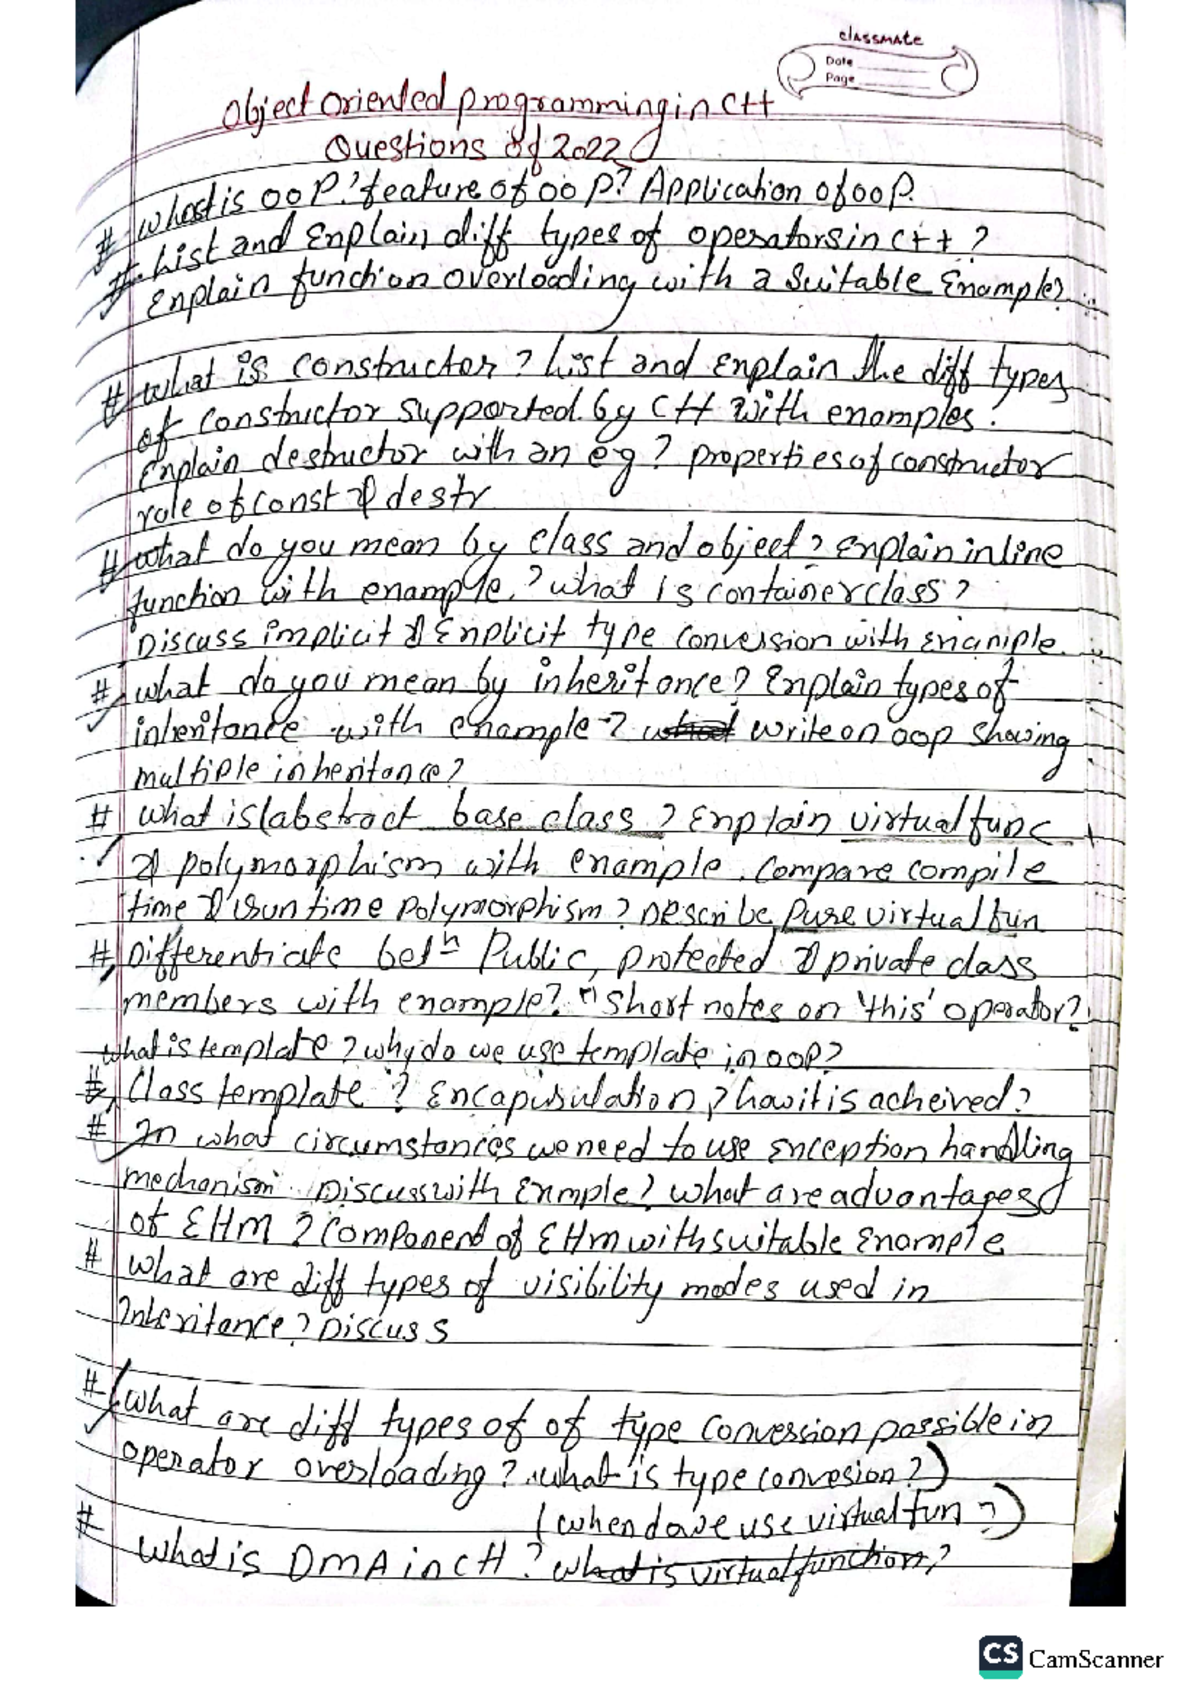 classmate
Date
Page
Object Oriented programming in C++
Questions of 2022
# What is OOP? feature of OOP? Application of OOP.
# List and Explain diff types of operators in C++ ?
Explain function overloading with a Suitable Example?
# What is constructor ? List and Explain the diff types
of constructor supported by C++ with examples.
Explain destructor with an eg ? properties of constructor
role of const & destr
# What do you mean by class and object? Explain inline
function with example. ? what is container class ?
Discuss implicit & Explicit type conversion with Example.
# what do you mean by inheritance? Explain types of
inheritance with example ? what write an oop showing
multiple inheritance?
# what is (abstract base class ? Explain virtual func
& polymorphism with example. compare compile
time & runtime polymorphism? Describe Pure virtual fun
# Differentiate betn Public, protected & private class
members with example? short notes on 'this' operator?
what is template ? why do we use template in OOP?
# Class template ? Encapusulation, ? how it is acheived?
# In what circumstances we need to use exception handling
mechanism. Discuss with Exmple? what are advantages
of EHM ? Component of EHM with suitable Example
# what are diff types of visibility modes used in
Inheritance ? Discuss
# (what are diff types of of type conversion possible in
operator overloading ? what is type convesion ?)
(when do we use virtual fun ?)
# what is DMA in C++ ? what is virtual function?
CS CamScanner